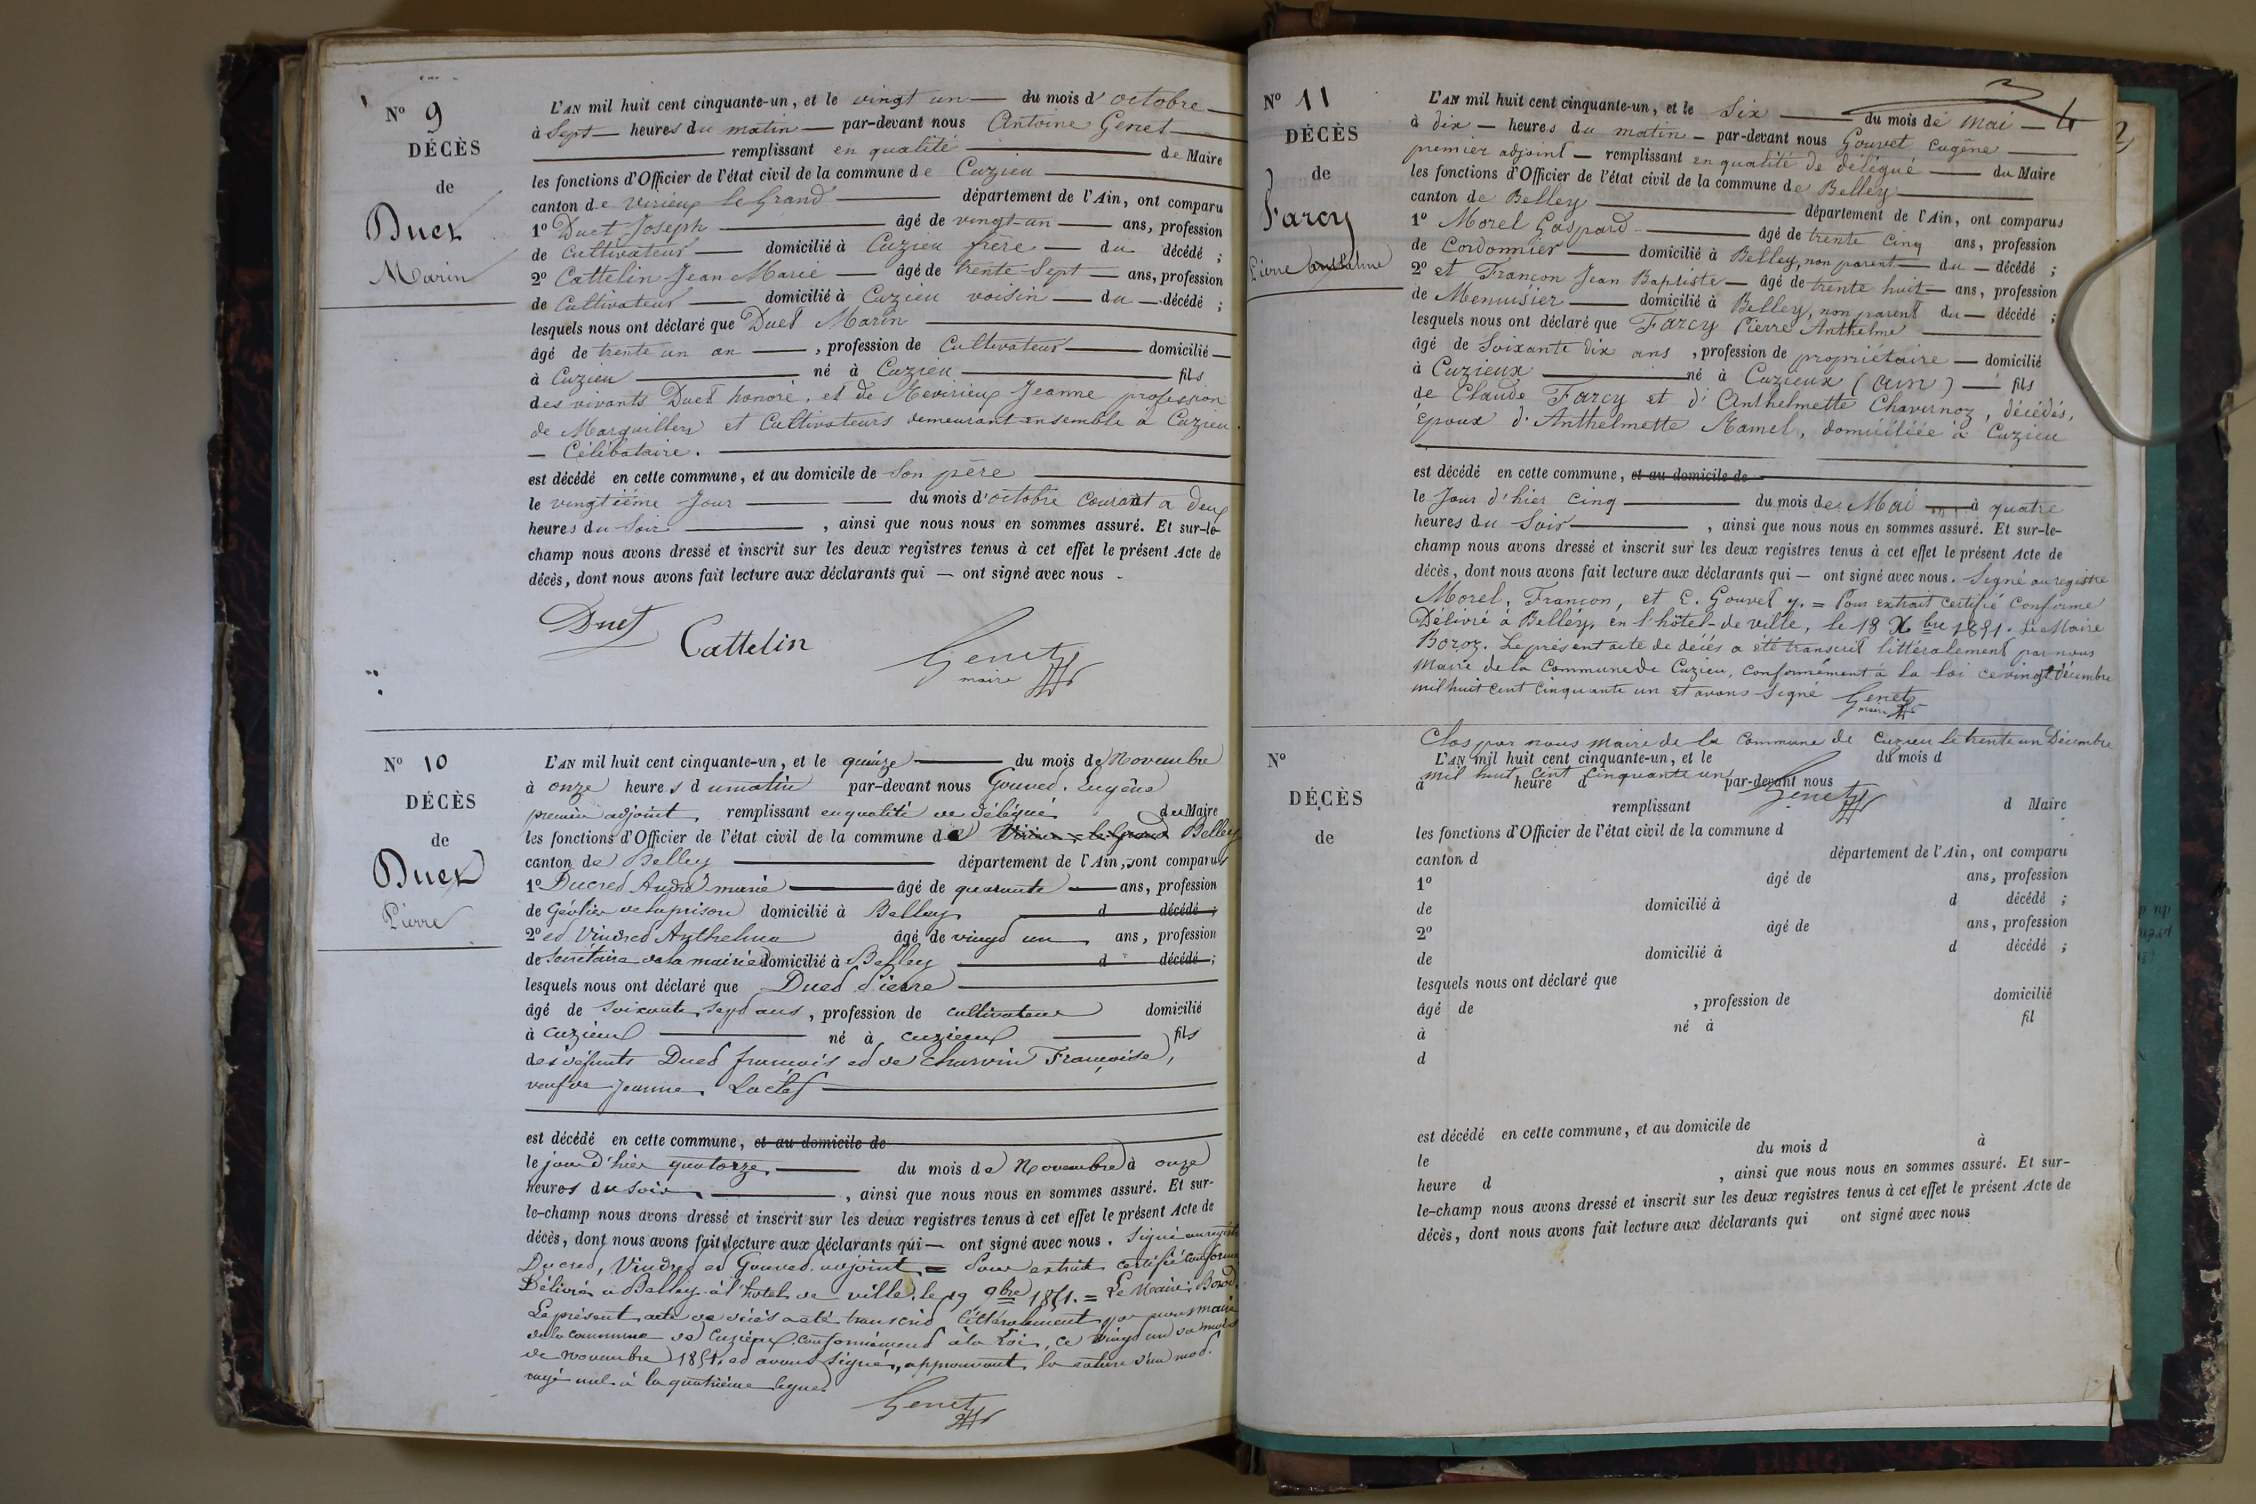 N° 9
DÉCÈS
de
Duet
Marin
L'AN mil huit cent cinquante-un, et le vingt un du mois d'octobre
à Sept heures du matin par-devant nous Antoine Genet
remplissant en qualité de Maire
les fonctions d'Officier de l'état civil de la commune de Cuzieu
canton de Virieux le Grand département de l'Ain, ont comparu
1° Duet Joseph âgé de vingt-un ans, profession
de Cultivateur domicilié à Cuzieu frère du décédé ;
2° Cattelin Jean Marie âgé de trente Sept ans, profession
de Cultivateur domicilié à Cuzieu voisin du décédé ;
lesquels nous ont déclaré que Duet Marin
âgé de trente un an , profession de Cultivateur domicilié
à Cuzieu né à Cuzieu fils
des vivants Duet honoré, et de Jeanne profession
de Marguillers et Cultivateurs demeurant ensemble à Cuzieu
Célibataire.
est décédé en cette commune, et au domicile de Son père
le vingtième Jour du mois d'octobre Courant a deux
heures du Soir , ainsi que nous nous en sommes assuré. Et sur-le-
champ nous avons dressé et inscrit sur les deux registres tenus à cet effet le présent Acte de
décès, dont nous avons fait lecture aux déclarants qui — ont signé avec nous .
Duet
Cattelin
Genet
maire
N° 10
DÉCÈS
de
Duet
Pierre
L'AN mil huit cent cinquante-un, et le quinze du mois de Novembre
à onze heures du matin par-devant nous Gouvet Eugène
premier adjoint, remplissant en qualité de délégué du Maire
les fonctions d'Officier de l'état civil de la commune de Virieu-le-Grand Belley
canton de Belley département de l'Ain, ont comparus
1° Ducret André marie âgé de quarante ans, profession
de Geôlier de la prison domicilié à Belley d décédé ;
2° et Vindret Anthelme âgé de vingt un ans, profession
de Secrétaire de la mairie domicilié à Belley d décédé ;
lesquels nous ont déclaré que Duet Pierre
âgé de soixante sept ans, profession de cultivateur domicilié
à cuzieux né à cuzieux fils
des défunts Duet françois et de Charvin Françoise,
veuf de Jeanne Laclef
est décédé en cette commune, et au domicile de
le jour d'hier quatorze du mois de Novembre à onze
heures du soir , ainsi que nous nous en sommes assuré. Et sur-
le-champ nous avons dressé et inscrit sur les deux registres tenus à cet effet le présent Acte de
décès, dont nous avons fait lecture aux déclarants qui — ont signé avec nous. Signé au registre
Ducret, Vindret et Gouvet adjoint = Pour extrait certifié conforme
Délivré à Belley à l'hotel de ville, le 19 9bre 1851. = Le Maire, Boroz.
Le présent acte de décès a été transcrit littéralement par nous maire
de la commune de Cuzieux conformément à la loi, ce vingt un du mois
de novembre 1851, et avons signé, approuvant la rature d'un mot
rayé nul à la quatrième ligne
Genet
N° 11
DÉCÈS
de
Farcy
Pierre Anthelme
L'AN mil huit cent cinquante-un, et le Six du mois de mai
à dix heures du matin par-devant nous Gouvet Eugène
premier adjoint remplissant en qualité de délégué du Maire
les fonctions d'Officier de l'état civil de la commune de Belley
canton de Belley département de l'Ain, ont comparus
1° Morel Gaspard âgé de trente cinq ans, profession
de Cordonnier domicilié à Belley, non parent du décédé ;
2° et Françon Jean Baptiste âgé de trente huit ans, profession
de Menuisier domicilié à Belley, non parent du décédé ;
lesquels nous ont déclaré que Farcy Pierre Anthelme
âgé de Soixante dix ans , profession de propriétaire domicilié
à Cuzieux né à Cuzieux (ain) fils
de Claude Farcy et d'Anthelmette Chavernoz, décédés,
Epoux d'Anthelmette Ramel, domiciliée à Cuzieu
est décédé en cette commune, et au domicile de
le Jour d'hier cinq du mois de Mai à quatre
heures du Soir , ainsi que nous nous en sommes assuré. Et sur-le-
champ nous avons dressé et inscrit sur les deux registres tenus à cet effet le présent Acte de
décès, dont nous avons fait lecture aux déclarants qui — ont signé avec nous. Signé au registre
Morel, Françon, et E. Gouvet y. = Pour extrait certifié conforme
Délivré à Belley, en l'hôtel-de ville, le 18 Xbre 1851. Le Maire
Boroz. Le présent acte de décés a été transcrit littéralement par nous
Maire de la Commune de Cuzieu, conformément à la loi ce vingt Décembre
mil huit cent cinquante un et avons signé Genet
maire
Clos par nous maire de la Commune de Cuzieu le trente un Décembre
mil huit cent cinquante un
Genet
N°
DÉCÈS
de
L'AN mil huit cent cinquante-un, et le du mois d
à heure d par-devant nous
remplissant d Maire
les fonctions d'Officier de l'état civil de la commune d
canton d département de l'Ain, ont comparu
1° âgé de ans, profession
de domicilié à d décédé ;
2° âgé de ans, profession
de domicilié à d décédé ;
lesquels nous ont déclaré que
âgé de , profession de domicilié
à né à fil
d
est décédé en cette commune, et au domicile de
le du mois d à
heure d , ainsi que nous nous en sommes assuré. Et sur-
le-champ nous avons dressé et inscrit sur les deux registres tenus à cet effet le présent Acte de
décès, dont nous avons fait lecture aux déclarants qui ont signé avec nous